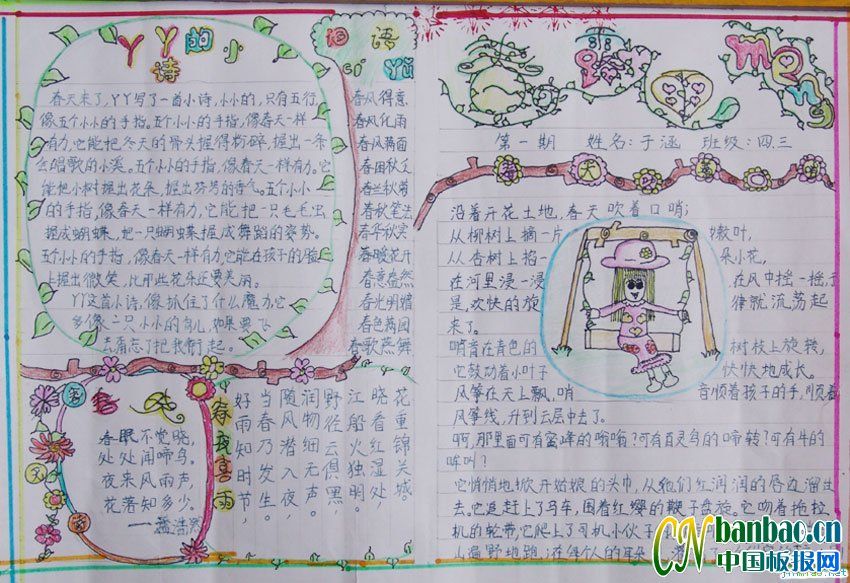 丫丫的小
诗
春天来了,丫丫写了一首小诗,小小的,只有五行,
像五个小小的手指。五个小小的手指,像春天一样
有力,它能把冬天的骨头握得粉碎,握出一条
会唱歌的小溪。五个小小的手指,像春天一样有力。它
能把小树握出花朵,握出芬芳的香气。五个小小
的手指,像春天一样有力,它能把一只毛毛虫
握成蝴蝶,把一只蝴蝶握成舞蹈的姿势。
五个小小的手指,像春天一样有力,它能在孩子的脸
上握出微笑,比那些花朵还要美丽。
丫丫这首小诗,像抓住了什么魔力,它
多像一只小小的鸟儿,如果要飞
去,别忘了把我带走。
词语
cí yǔ
春风得意
春风化雨
春风满面
春回秋
春兰秋菊
春秋笔法
春华秋实
春暖花开
春意盎然
春光明媚
春色满园
春歌燕舞
春眠不觉晓,
处处闻啼鸟。
夜来风雨声,
花落知多少。
——孟浩然
春夜喜雨
好雨知时节,
当春乃发生。
随风潜入夜,
润物细无声。
野径云俱黑,
江船火独明。
晓看红湿处,
花重锦关城。
第一期 姓名:于涵 班级:四三
春天的
沿着开花土地,春天吹着口哨;
从柳树上摘一片嫩叶,
从杏树上掐一朵小花,
在河里浸一浸 在风中摇一摇,于
是,欢快的旋律就流荡起
来了。
哨音在青色的树枝上旋转,
它鼓动着小叶子快快地成长。
风筝在天上飘,哨音顺着孩子的手,顺着
风筝线,升到云层中去了。
啊,那里面可有蜜蜂的嗡嗡?可有百灵鸟的啼转?可有牛的
哞叫?
它悄悄地掀开姑娘的头巾,从他们红润润的唇边溜出
去。它追赶上了马车,围着红缨的鞭子盘旋。它吻着拖拉
机的轮带,它爬上了司机小伙子
山遍野地跑;在每个人的耳朵
CN banbao.cn
中国板报网